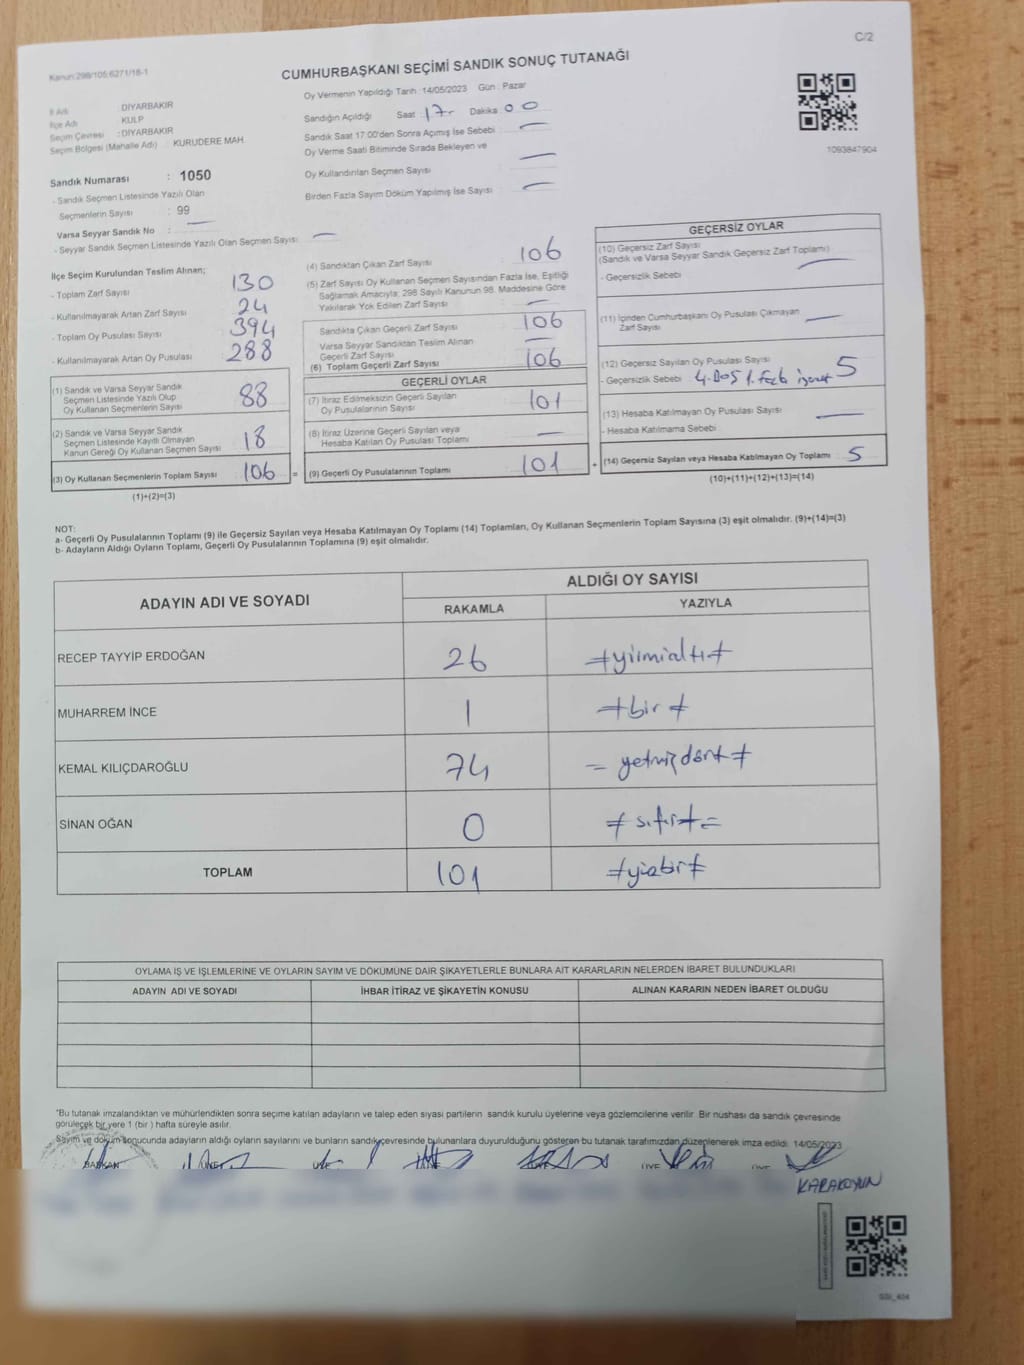 C/2
Kanun:298/105;6271/18-1
CUMHURBAŞKANI SEÇİMİ SANDIK SONUÇ TUTANAĞI
İl Adı : DİYARBAKIR
İlçe Adı : KULP
Seçim Çevresi : DİYARBAKIR
Seçim Bölgesi (Mahalle Adı) : KURUDERE MAH
Sandık Numarası : 1050
- Sandık Seçmen Listesinde Yazılı Olan
Seçmenlerin Sayısı : 99
Varsa Seyyar Sandık No : —
- Seyyar Sandık Seçmen Listesinde Yazılı Olan Seçmen Sayısı: —
Oy Vermenin Yapıldığı Tarih :14/05/2023 Gün : Pazar
Sandığın Açıldığı Saat 17 Dakika 00
Sandık Saat 17:00'den Sonra Açımış İse Sebebi —
Oy Verme Saati Bitiminde Sırada Bekleyen ve
Oy Kullandırılan Seçmen Sayısı —
Birden Fazla Sayım Döküm Yapılmış İse Sayısı —
1093847904
İlçe Seçim Kurulundan Teslim Alınan;
- Toplam Zarf Sayısı 130
- Kullanılmayarak Artan Zarf Sayısı 24
- Toplam Oy Pusulası Sayısı 394
- Kullanılmayarak Artan Oy Pusulası 288
(1) Sandık ve Varsa Seyyar Sandık
Seçmen Listesinde Yazılı Olup
Oy Kullanan Seçmenlerin Sayısı 88
(2) Sandık ve Varsa Seyyar Sandık
Seçmen Listesinde Kayıtlı Olmayan
Kanun Gereği Oy Kullanan Seçmen Sayısı 18
(3) Oy Kullanan Seçmenlerin Toplam Sayısı 106 =
(1)+(2)=(3)
(4) Sandıktan Çıkan Zarf Sayısı 106
(5) Zarf Sayısı Oy Kullanan Seçmen Sayısından Fazla İse, Eşitliği
Sağlamak Amacıyla; 298 Sayılı Kanunun 98. Maddesine Göre
Yakılarak Yok Edilen Zarf Sayısı —
Sandıkta Çıkan Geçerli Zarf Sayısı 106
Varsa Seyyar Sandıktan Teslim Alınan
Geçerli Zarf Sayısı —
(6) Toplam Geçerli Zarf Sayısı 106
GEÇERLİ OYLAR
(7) İtiraz Edilmeksizin Geçerli Sayılan
Oy Pusulalarının Sayısı 101
(8) İtiraz Üzerine Geçerli Sayılan veya
Hesaba Katılan Oy Pusulası Toplamı —
(9) Geçerli Oy Pusulalarının Toplamı 101 +
GEÇERSİZ OYLAR
(10) Geçersiz Zarf Sayısı
(Sandık ve Varsa Seyyar Sandık Geçersiz Zarf Toplamı)
- Geçersizlik Sebebi —
(11) İçinden Cumhurbaşkanı Oy Pusulası Çıkmayan
Zarf Sayısı —
(12) Geçersiz Sayılan Oy Pusulası Sayısı 5
- Geçersizlik Sebebi 4.Boş 1.
(13) Hesaba Katılmayan Oy Pusulası Sayısı —
- Hesaba Katılmama Sebebi
(14) Geçersiz Sayılan veya Hesaba Katılmayan Oy Toplamı 5
(10)+(11)+(12)+(13)=(14)
NOT:
a- Geçerli Oy Pusulalarının Toplamı (9) ile Geçersiz Sayılan veya Hesaba Katılmayan Oy Toplamı (14) Toplamları, Oy Kullanan Seçmenlerin Toplam Sayısına (3) eşit olmalıdır. (9)+(14)=(3)
b- Adayların Aldığı Oyların Toplamı, Geçerli Oy Pusulalarının Toplamına (9) eşit olmalıdır.
ADAYIN ADI VE SOYADI ALDIĞI OY SAYISI
RAKAMLA YAZIYLA
RECEP TAYYİP ERDOĞAN 26 ≠yirmialtı≠
MUHARREM İNCE 1 ≠bir≠
KEMAL KILIÇDAROĞLU 74 = yetmişdört≠
SİNAN OĞAN 0 ≠sıfır≠=
TOPLAM 101 ≠yüzbir≠
OYLAMA İŞ VE İŞLEMLERİNE VE OYLARIN SAYIM VE DÖKÜMÜNE DAİR ŞİKAYETLERLE BUNLARA AİT KARARLARIN NELERDEN İBARET BULUNDUKLARI
ADAYIN ADI VE SOYADI İHBAR İTİRAZ VE ŞİKAYETİN KONUSU ALINAN KARARIN NEDEN İBARET OLDUĞU
*Bu tutanak imzalandıktan ve mühürlendikten sonra seçime katılan adayların ve talep eden siyasi partilerin sandık kurulu üyelerine veya gözlemcilerine verilir. Bir nüshası da sandık çevresinde
görülecek bir yere 1 (bir ) hafta süreyle asılır.
Sayım ve döküm sonucunda adayların aldığı oyların sayılarını ve bunların sandık çevresinde bulunanlara duyurulduğunu gösteren bu tutanak tarafımızdan düzenlenerek imza edildi. 14/05/2023
BAŞKAN ÜYE ÜYE
KARAKOYUN